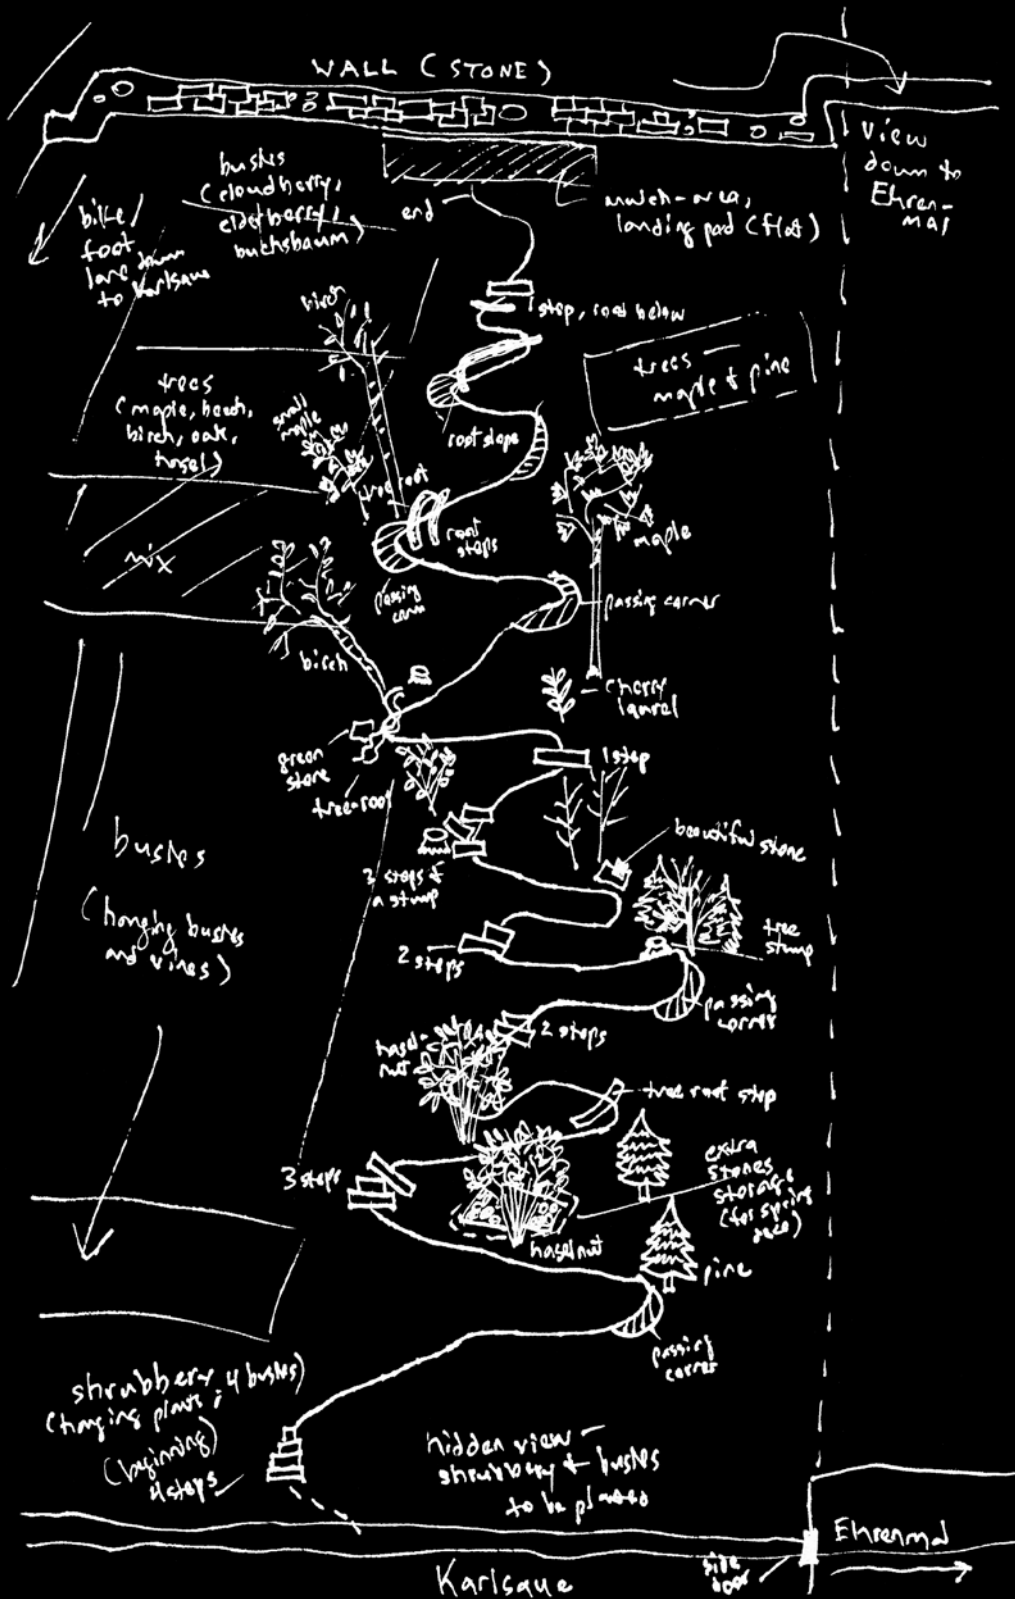 WALL (STONE)
View
down to
Ehren-
mal
bushes
(cloudberry,
elderberry,
buchsbaum)
bike/
foot
lane down
to Karlsaue
end
mulch-area,
landing pad (flat)
1 step, root below
birch
trees
(maple, beech,
birch, oak,
hasel)
trees -
maple & pine
small
maple
root slope
tree root
root
steps
maple
mix
passing
corner
passing corner
birch
cherry
laurel
green
stone
tree-root
1 step
beautiful stone
bushes
(hanging bushes
and vines)
3 steps &
a stump
tree
stump
2 steps
passing
corner
2 steps
hasel-
nut
tree root step
3 steps
extra
stones
storage
(for spring
haselnut
pine
passing
corner
shrubbery, 4 bushes)
(hanging plants;
(beginning)
4 steps
hidden view -
shrubbery & bushes
to be planted
Ehrenmal
side
door
Karlsaue